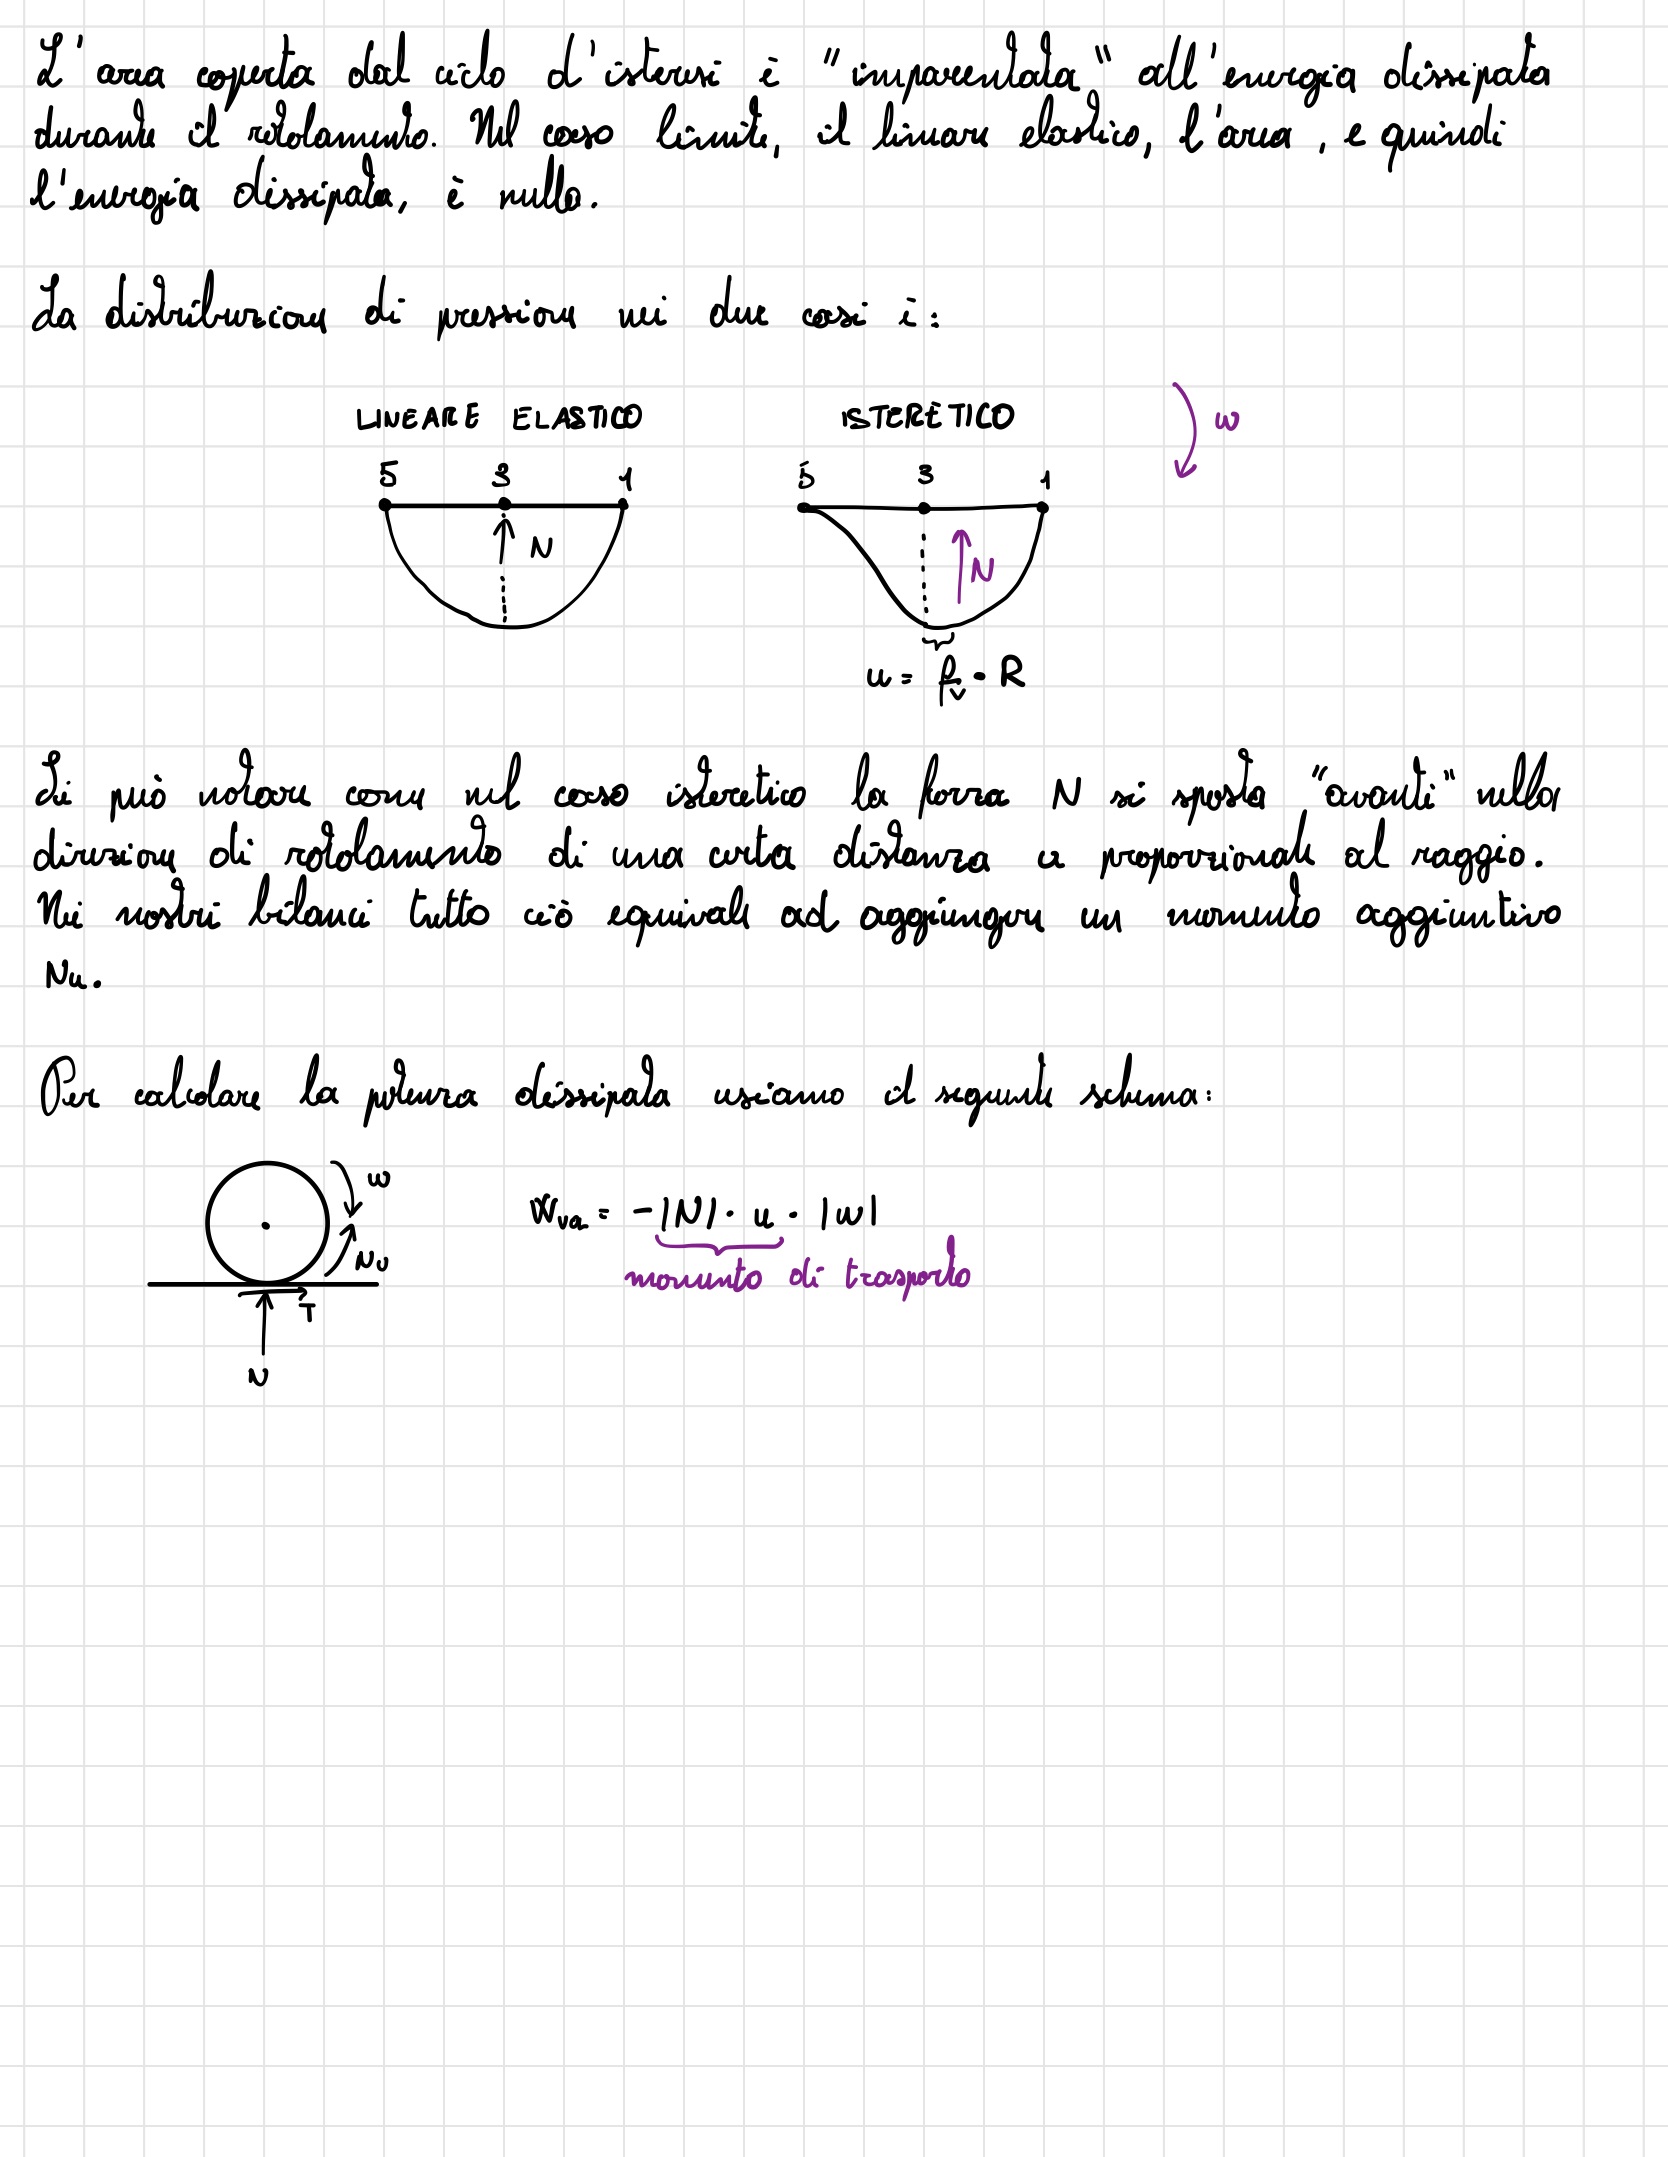 L'area coperta dal ciclo d'isteresi è "imparentata" all'energia dissipata
durante il rotolamento. Nel caso limite, il lineare elastico, l'area, e quindi
l'energia dissipata, è nulla.
La distribuzione di pressione nei due casi è:
LINEARE ELASTICO ISTERETICO ω
5 3 1 5 3 1
N N
u = fv · R
Si può notare come nel caso isteretico la forza N si sposta "avanti" nella
direzione di rotolamento di una certa distanza u proporzionale al raggio.
Nei nostri bilanci tutto ciò equivale ad aggiungere un momento aggiuntivo
Nu.
Per calcolare la potenza dissipata usiamo il seguente schema:
ω
Wva = -|N| · u · |ω|
Nu
momento di trasporto
T
N